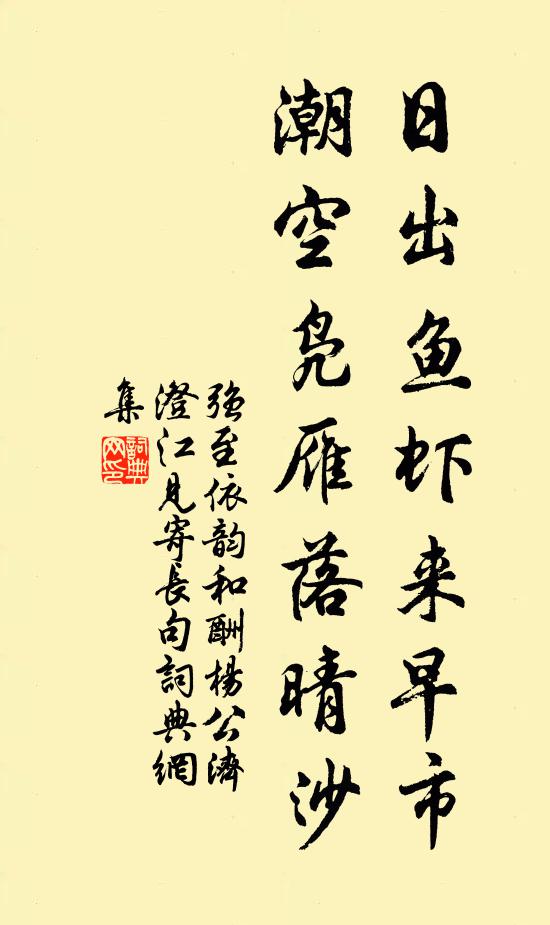 日出鱼虾来早市
潮空凫雁落晴沙
强至依韵和酬杨公济
澄江见寄长句詞典網
集
詞典
网印